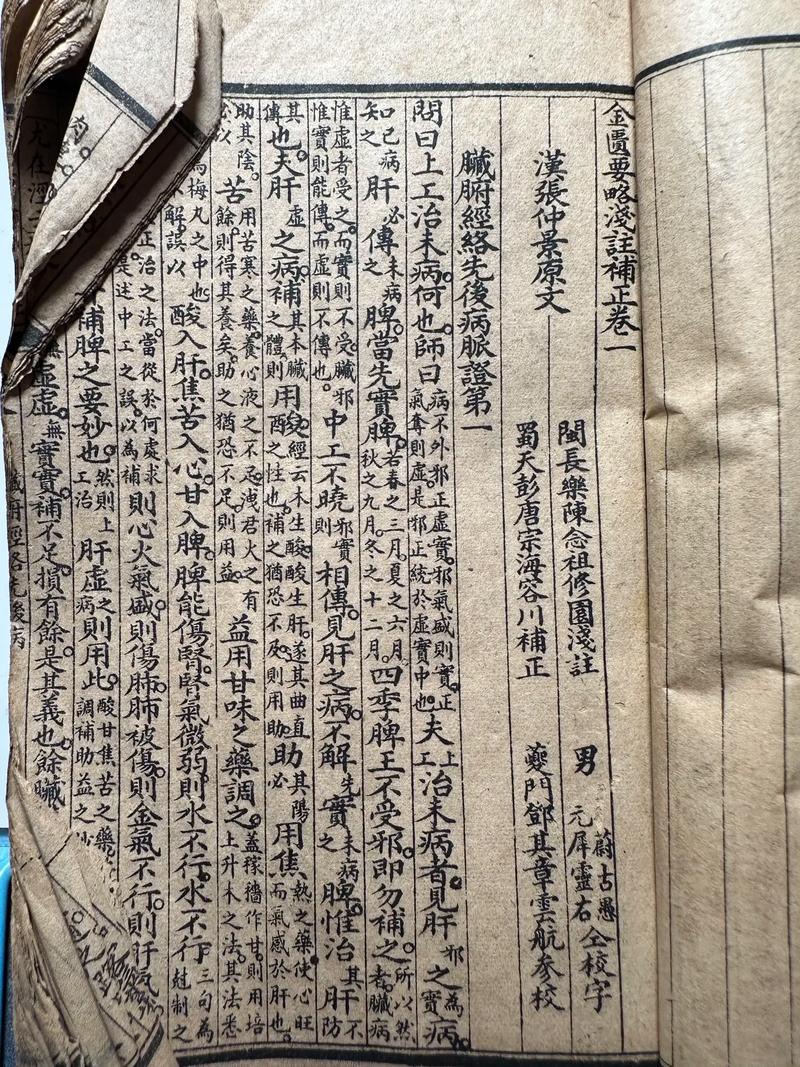 金匱要略淺註補正卷一
漢張仲景原文
閩長樂陳念祖修園淺註
男
蔚古愚
元犀靈石
仝校字
蜀天彭唐宗海容川補正
夔門鄧其章雲航參校
臟腑經絡先後病脈證第一
問曰上工治未病何也。師曰病不外邪正虛實。邪氣盛則實。正氣奪則虛。是邪正統於虛實中也。夫上工治未病者。見肝邪之為實病。
知已病之肝必傳未病之脾。當先實脾。若春之三月。夏之六月。秋之九月。冬之十二月。四季脾王不受邪。即勿補之。所以然者。臟病
惟虛者受之。而實則不受。臟邪惟實則能傳。而虛則不傳也。中工不曉邪實則相傳。見肝之病。不解先實未病之脾。惟治其肝不防
其傳也。夫肝虛之病。補其本臟之體則用酸。經云木生酸。酸生肝。遂其曲直之性也。補之猶恐不及。則用助。助其陽必用焦熱之藥使心旺而氣感於肝也。
助其陰。必以苦用苦寒之藥。養心液之不足。洩君火之有餘。則得其養矣。助之猶恐不足。則用益。益用甘味之藥調之。蓋稼穡作甘。則用培上升木之法。其法悉
為梅丸之中也。解誤以酸入肝。焦苦入心。甘入脾。脾能傷腎。腎氣微弱。則水不行。水不行下三句為尅制之
正治之法。當從於何處求是述中工之誤。以為補則心火氣盛。則傷肺。肺被傷。則金氣不行。則肝氣
補脾之要妙也。然則上工治肝虛之病則用此酸甘焦苦之藥調補助益之
虛虛。無實實。補不足。損有餘。是其義也。餘臟
臟腑經絡先後病